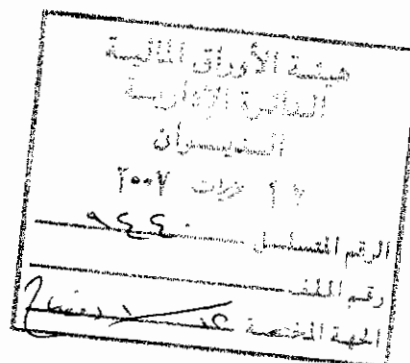 هيئة الأوراق المالية
الدائرة الإدارية
الديوان
٢٠٠٧
الرقم المتسلسل ٩٤٤٠
رقم الملف
الجهة المختصة